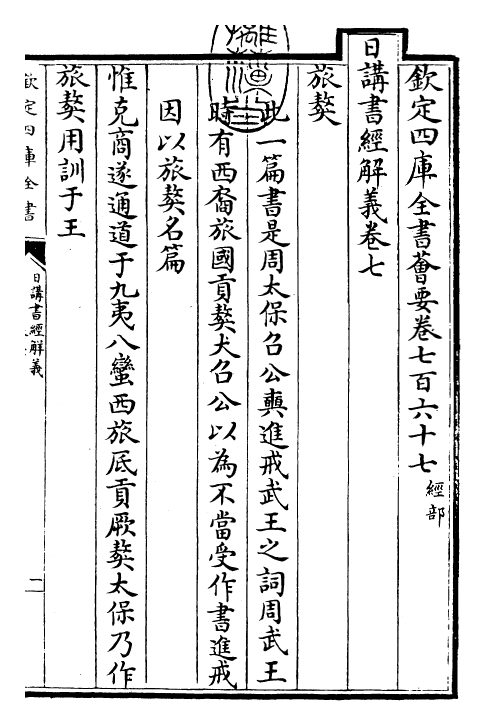 欽定四庫全書薈要卷七百六十七 經部
日講書經解義卷七
旅獒
此一篇書是周太保召公奭進戒武王之詞周武王
時有西裔旅國貢獒犬召公以為不當受作書進戒
因以旅獒名篇
惟克商遂通道于九夷八蠻西旅厎貢厥獒太保乃作
旅獒用訓于王
欽定四庫全書
日講書經解義